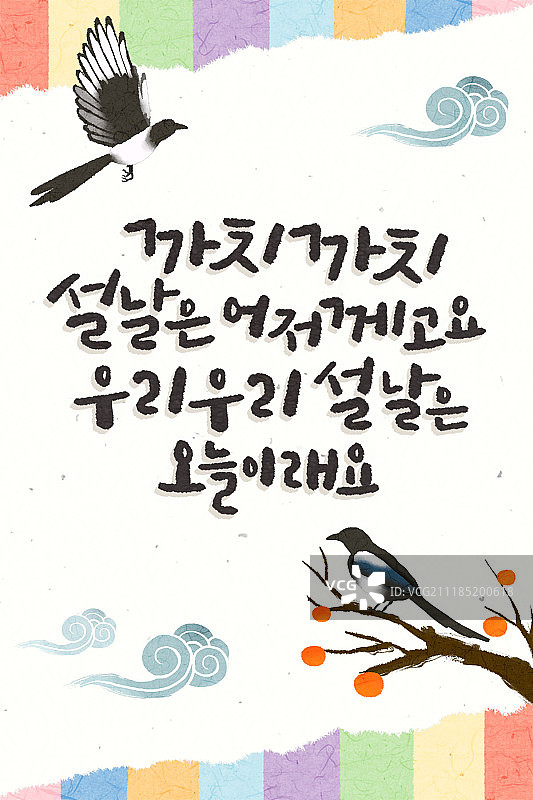 까치 까치
설날은 어저께고요
우리 우리 설날은
오늘이래요
VCG
VCG211185200618